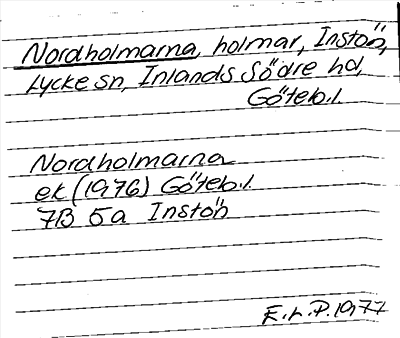 Nordholmarna, holmar, Instön,
Lycke sn, Inlands Södre hd,
Göteb.l.
Nordholmarna
ek (1976) Göteb.l.
7B 5a Instön
E.L.P. 1977